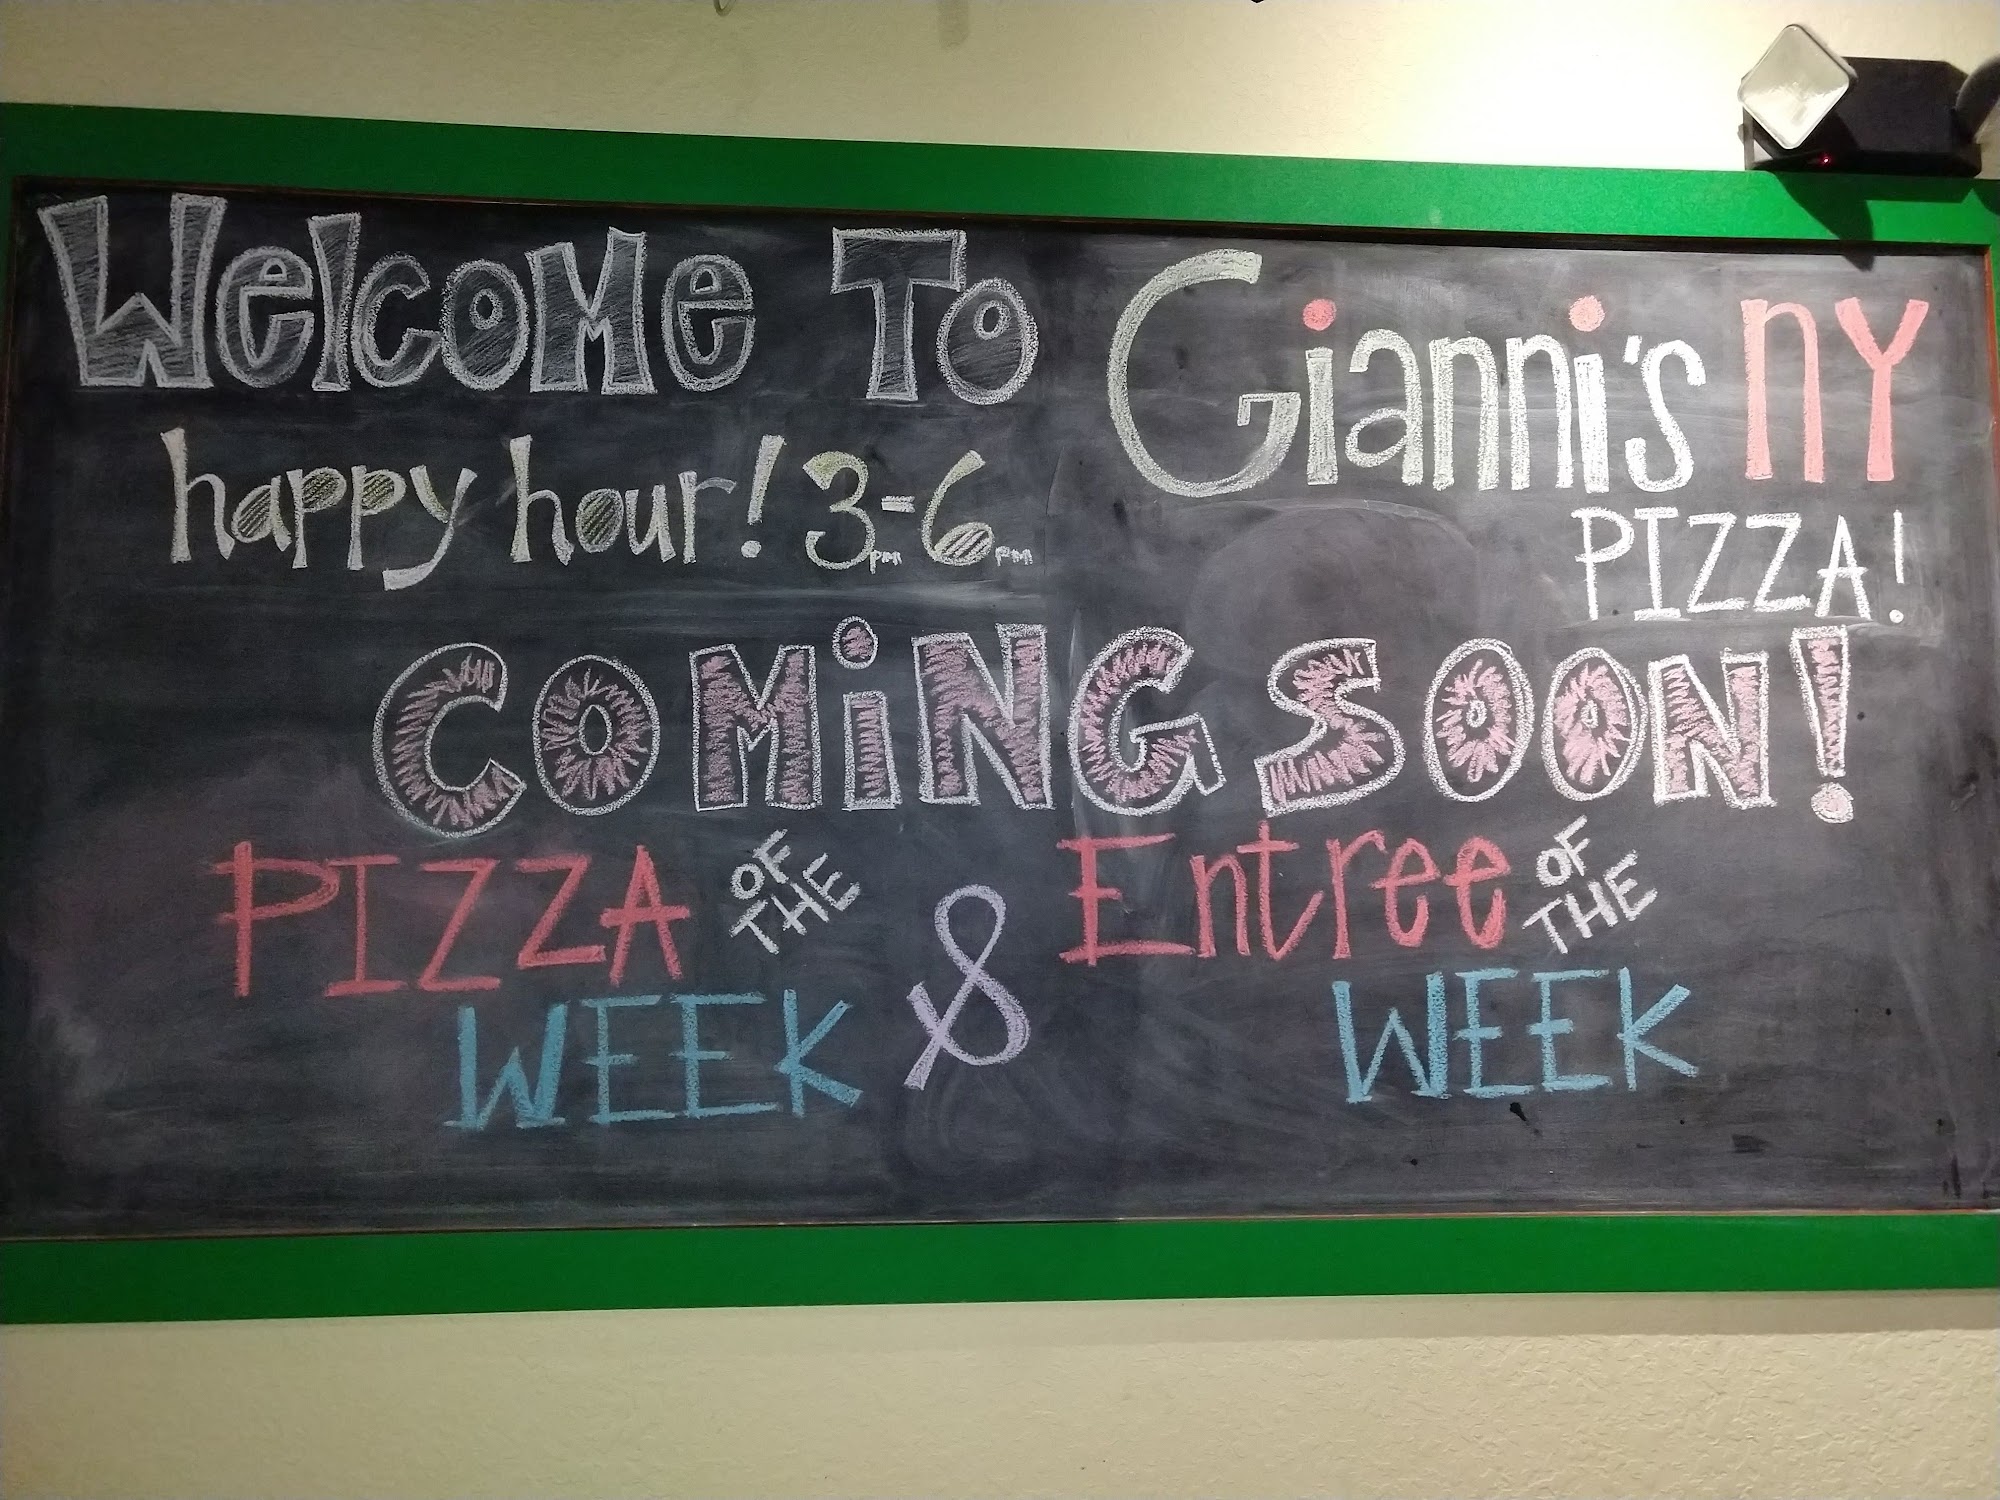 Welcome To Gianni's NY
PIZZA!
happy hour! 3PM-6PM
COMiNG SOON!
PIZZA OF THE WEEK & Entree OF THE WEEK